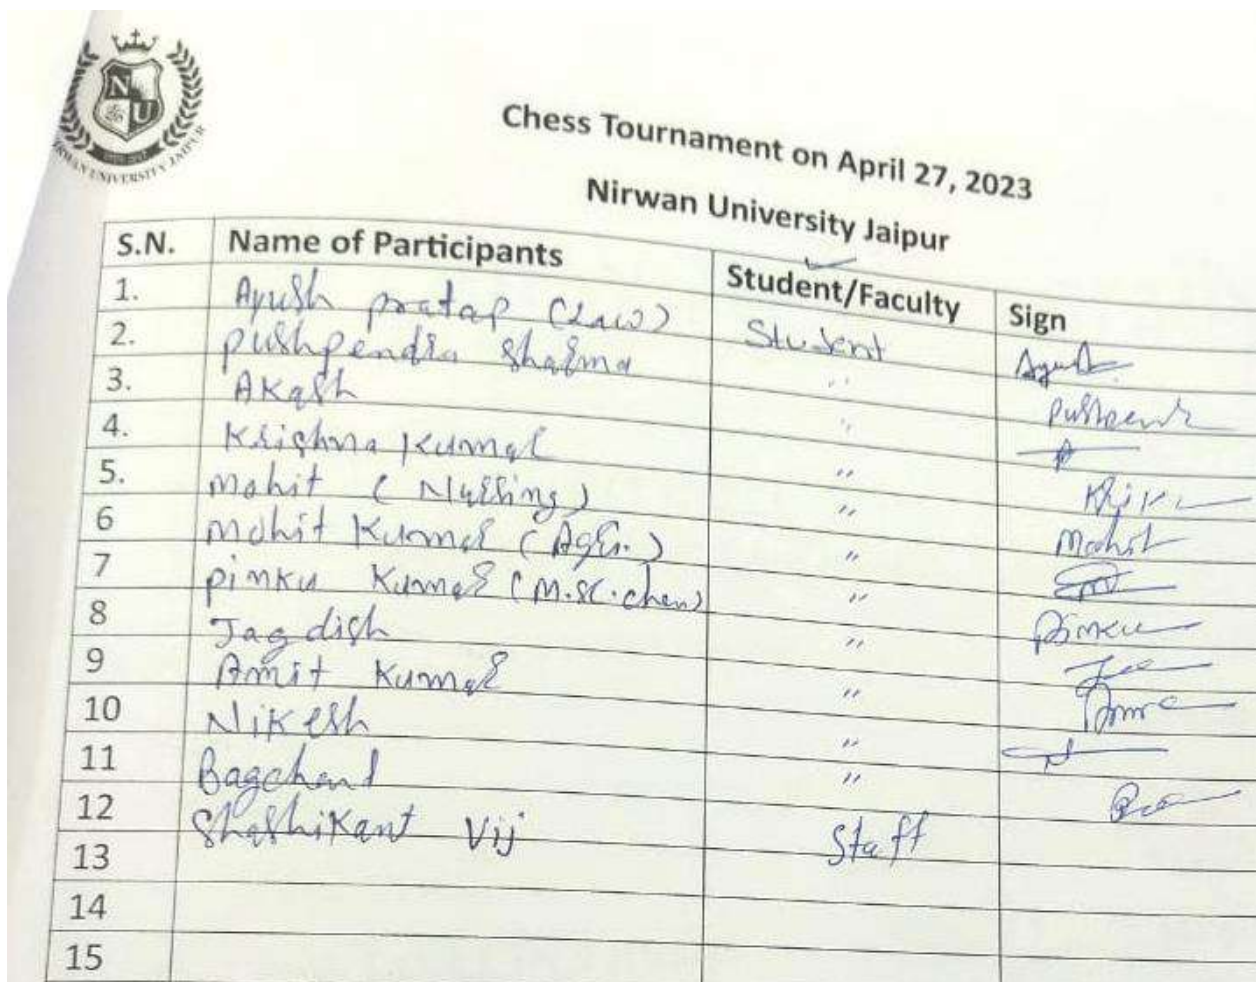 N U
NIRWAN UNIVERSITY JAIPUR
Chess Tournament on April 27, 2023
Nirwan University Jaipur
S.N. Name of Participants Student/Faculty Sign
1. Ayush pratap (Law) Student Ayush
2. Pushpendra Sharma " Pushpendr
3. Akash "
4. Krishna Kumar "
5. Mohit (Nursing) " Mohit
6 Mohit Kumar (Agri.) "
7 Pinku Kumar (M.Sc. chem) " Pinku
8 Jagdish "
9 Amit Kumar "
10 Nikesh "
11 Bagchand "
12 Shashikant Vij Staff
13
14
15